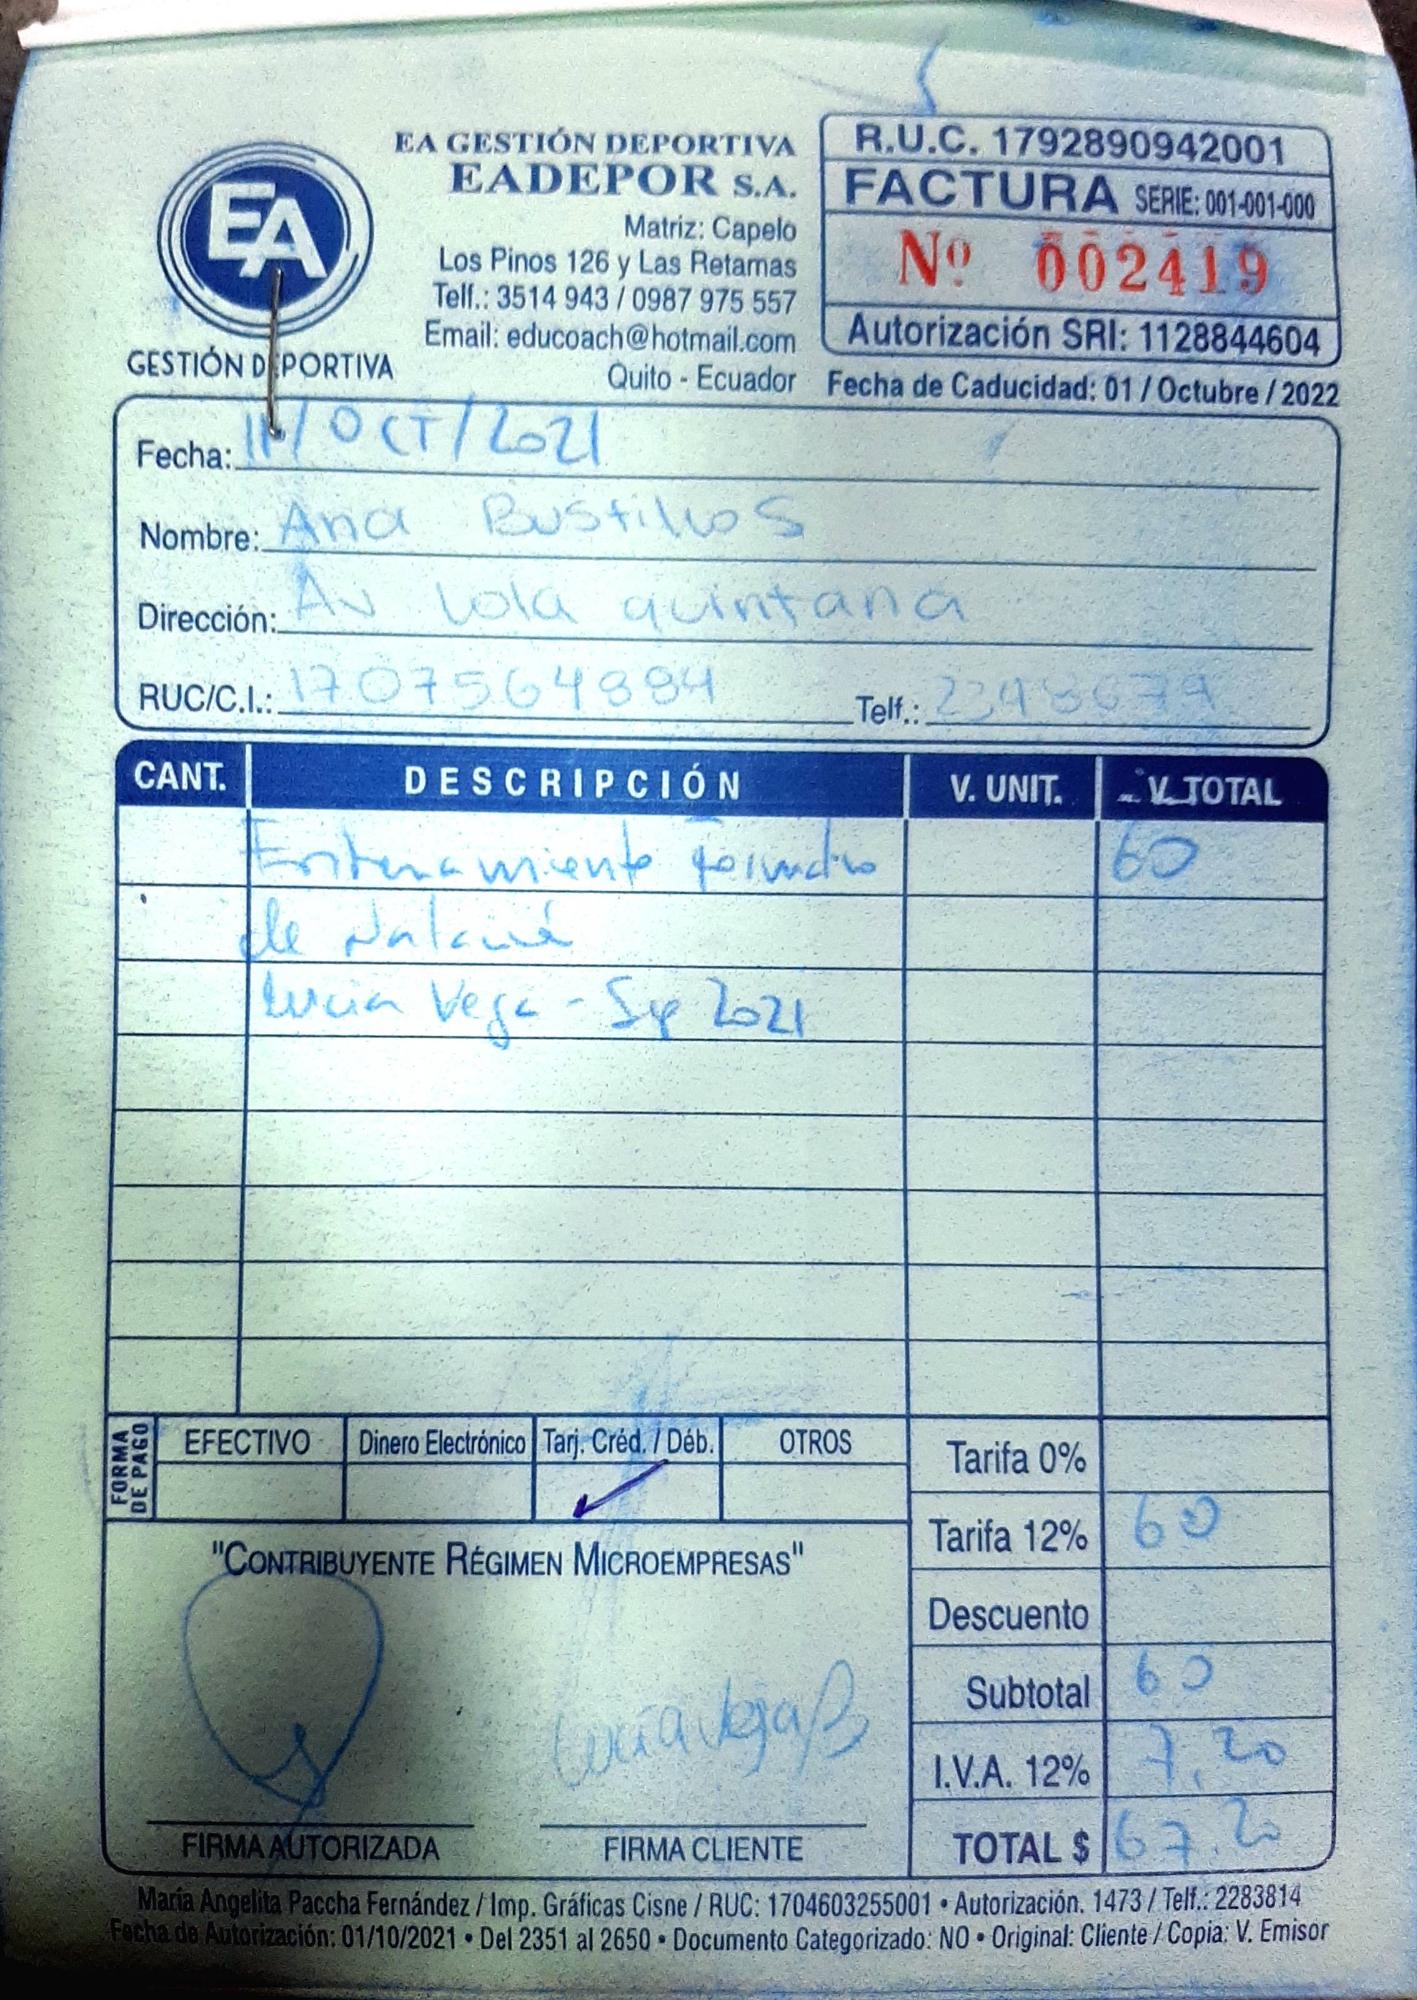 EA
GESTIÓN DEPORTIVA
EA GESTIÓN DEPORTIVA
EADEPOR S.A.
Matriz: Capelo
Los Pinos 126 y Las Retamas
Telf.: 3514 943 / 0987 975 557
Email: educoach@hotmail.com
Quito - Ecuador
R.U.C. 1792890942001
FACTURA SERIE: 001-001-000
Nº 002419
Autorización SRI: 1128844604
Fecha de Caducidad: 01 / Octubre / 2022
Fecha: 11/OCT/2021
Nombre: Ana Bustillos
Dirección: Av Lola quintana
RUC/C.I.: 1707564884 Telf.:
CANT. DESCRIPCIÓN V. UNIT. V. TOTAL
Entrenamiento 60
de
Lucia Vega - Sep 2021
FORMA DE PAGO
EFECTIVO Dinero Electrónico Tarj. Créd. / Déb. OTROS
Tarifa 0%
Tarifa 12% 60
Descuento
Subtotal 60
I.V.A. 12% 7,20
TOTAL $ 67.20
"CONTRIBUYENTE RÉGIMEN MICROEMPRESAS"
Lucía Vega B
FIRMA AUTORIZADA FIRMA CLIENTE
María Angelita Paccha Fernández / Imp. Gráficas Cisne / RUC: 1704603255001 • Autorización. 1473 / Telf.: 2283814
Fecha de Autorización: 01/10/2021 • Del 2351 al 2650 • Documento Categorizado: NO • Original: Cliente / Copia: V. Emisor